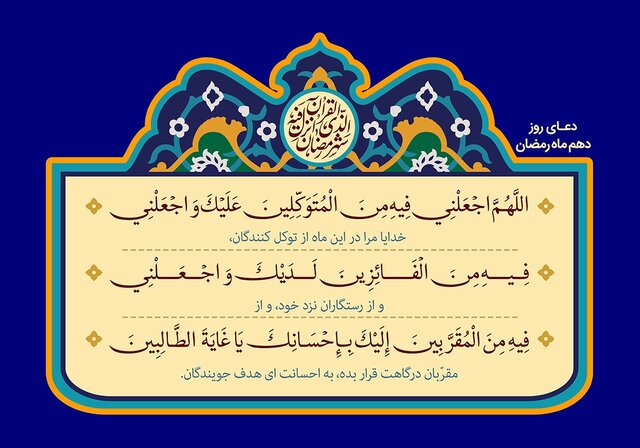 شهر رمضان الذی انزل فیه القرآن
دعـای روز
دهم ماه رمضان
اللَّهُمَّ اجْعَلْنِي فِيهِ مِنَ الْمُتَوَكِّلِينَ عَلَيْكَ وَ اجْعَلْنِي
خدایا مرا در این ماه از توکل کنندگان،
فِيهِ مِنَ الْفَائِزِينَ لَدَيْكَ وَ اجْعَلْنِي
و از رستگاران نزد خود، و از
فِيهِ مِنَ الْمُقَرَّبِينَ إِلَيْكَ بِإِحْسَانِكَ يَا غَايَةَ الطَّالِبِينَ
مقرّبان درگاهت قرار بده، به احسانت ای هدف جویندگان.